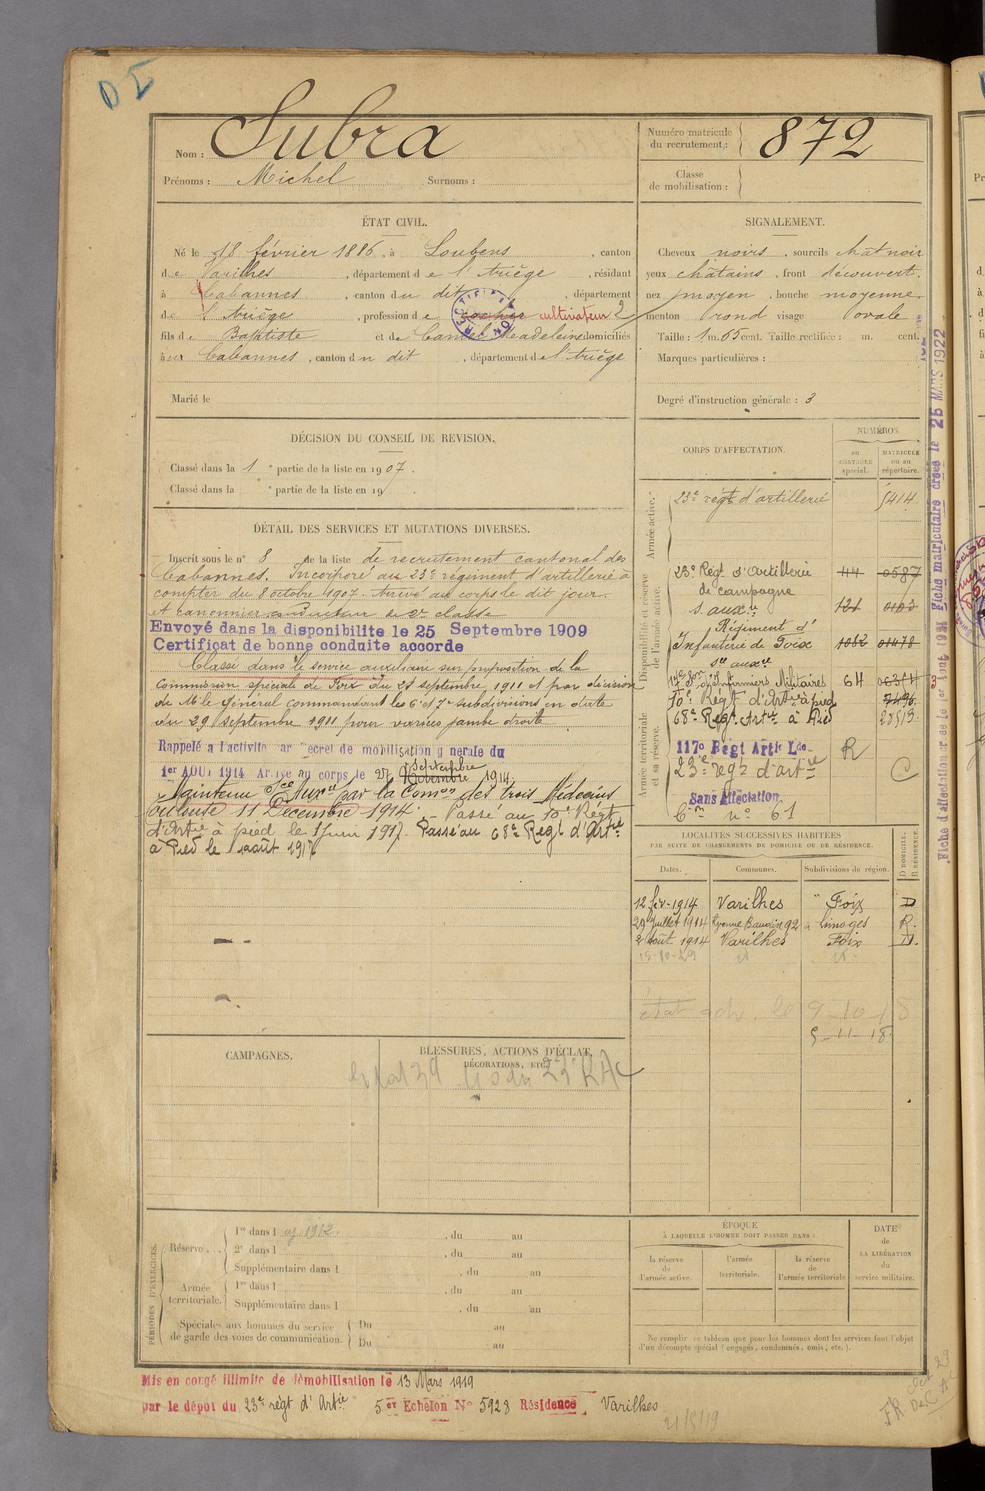 Nom : Subra
Prénoms : Michel Surnoms :
Numéro matricule du recrutement : 872
Classe de mobilisation :
ÉTAT CIVIL.
Né le 18 février 1886, à Loubens, canton
de Varilhes, département de l'Ariège, résidant
à Cabannes, canton du dit, département
de l'Ariège, profession de cocher cultivateur
RECTIFICATION
fils de Baptiste et de Camel Madeleine domiciliés
à Cabannes, canton du dit, département de l'Ariège
Marié le
SIGNALEMENT.
Cheveux noirs, sourcils chat noir
yeux châtains, front découvert,
nez moyen, bouche moyenne
menton rond visage ovale
Taille : 1 m. 65 cent. Taille rectifiée : m. cent.
Marques particulières :
Degré d'instruction générale : 3
DÉCISION DU CONSEIL DE REVISION.
Classé dans la 1e partie de la liste en 1907.
Classé dans la e partie de la liste en 19
DÉTAIL DES SERVICES ET MUTATIONS DIVERSES.
Inscrit sous le n° 8 de la liste de recrutement cantonal des
Cabannes. Incorporé au 23e régiment d'artillerie à
compter du 8 octobre 1907. Arrivé au corps le dit jour.
et canonnier conducteur de 2e classe
Envoyé dans la disponibilité le 25 Septembre 1909
Certificat de bonne conduite accordé
Classé dans le service auxiliaire sur proposition de la
commission spéciale de Foix du 28 septembre 1911 et par décision
de Mr le Général commandant les 6e et 7e subdivisions en date
du 29 septembre 1911 pour varices jambe droite
Rappelé à l'activité par Décret de mobilisation générale du
1er AOUT 1914 Arrivé au corps le 27 Novembre Septembre 1914.
Maintenu Sce Auxre par la Comon des trois Médecins
Toulouse 11 Décembre 1914. Passé au 10e Régt
d'Artie à pied le 1 Juin 1917. Passé au 68e Régt d'Artie
à Pied le 1 août 1917
CORPS D'AFFECTATION.
NUMÉROS
AU CONTROLE spécial.
MATRICULE ou au répertoire.
Armée active.
23e régt d'artillerie 5414
Disponibilité et réserve de l'armée active.
23e Régt d'Artillerie 44 0587
de campagne
s. auxre 121 0103
Régiment d'
Infanterie de Foix 1032 01478
Sce auxre
17e Son d'Infirmiers Militaires 64
10e Régt d'Artie à pied 7496
68e Régt Artie à Pied 20513
Armée territoriale et sa réserve.
117e Régt Artie Lde R
23e régt d'artie C
Sans Affectation
Cm n° 61
LOCALITÉS SUCCESSIVES HABITÉES
PAR SUITE DE CHANGEMENTS DE DOMICILE OU DE RÉSIDENCE.
Dates. Communes. Subdivisions de région. D DOMICILE. R RÉSIDENCE.
12 fév-1914 Varilhes Foix D
29 juillet 1914 92 Limoges R.
2 août 1914 Varilhes Foix D.
9-10-18
5-11-18
CAMPAGNES.
BLESSURES, ACTIONS D'ÉCLAT, DÉCORATIONS, ETC.
23e RAC
PÉRIODES D'EXERCICES.
Réserve. . .
1re dans l 1912 , du au
2e dans l , du au
Supplémentaire dans l , du au
Armée territoriale.
1re dans l , du au
Supplémentaire dans l , du au
Spéciales aux hommes du service de garde des voies de communication.
Du au
Du au
ÉPOQUE
À LAQUELLE L'HOMME DOIT PASSER DANS :
la réserve de l'armée active.
l'armée territoriale.
la réserve de l'armée territoriale
DATE de LA LIBÉRATION du service militaire.
Ne remplir ce tableau que pour les hommes dont les services font l'objet
d'un décompte spécial (engagés, condamnés, omis, etc.).
Mis en congé illimité de démobilisation le 13 Mars 1919
par le dépôt du 23e régt d'Artie 5e Echelon N° 5928 Résidence Varilhes
21/8/19
Fiche matriculaire créée le 25 MARS 1922